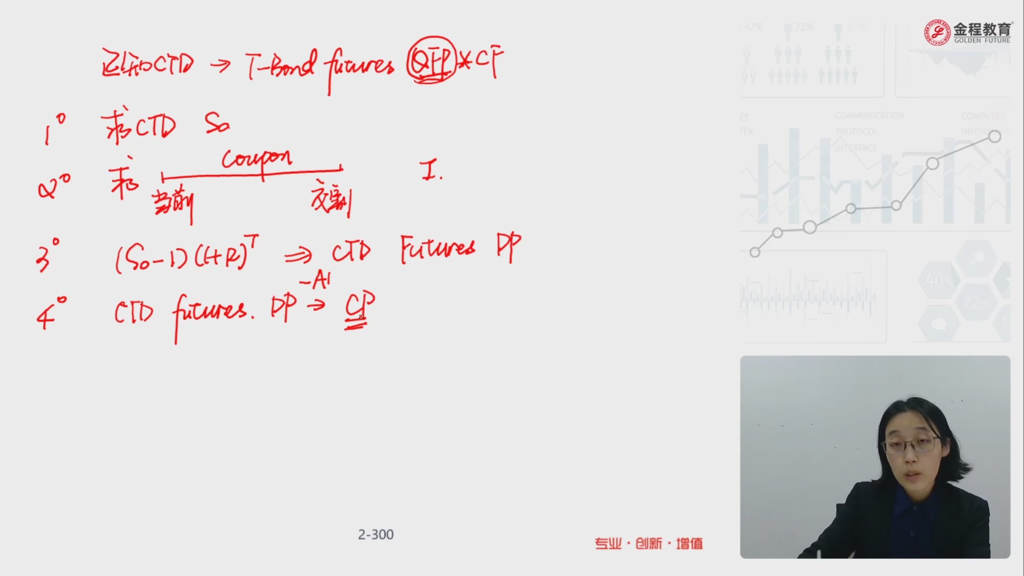 已知CTD → T-Bond futures QFP*CF
1° 求CTD S₀
coupon
2° 求 I.
当前 交割
3° (S₀-I)(1+R)ᵀ ⇒ CTD Futures DP
-AI
4° CTD futures. DP → CP
金程教育
GOLDEN FUTURE
COMMUNICATION
PROTOCOL
INTERFACE
2-300
专业·创新·增值